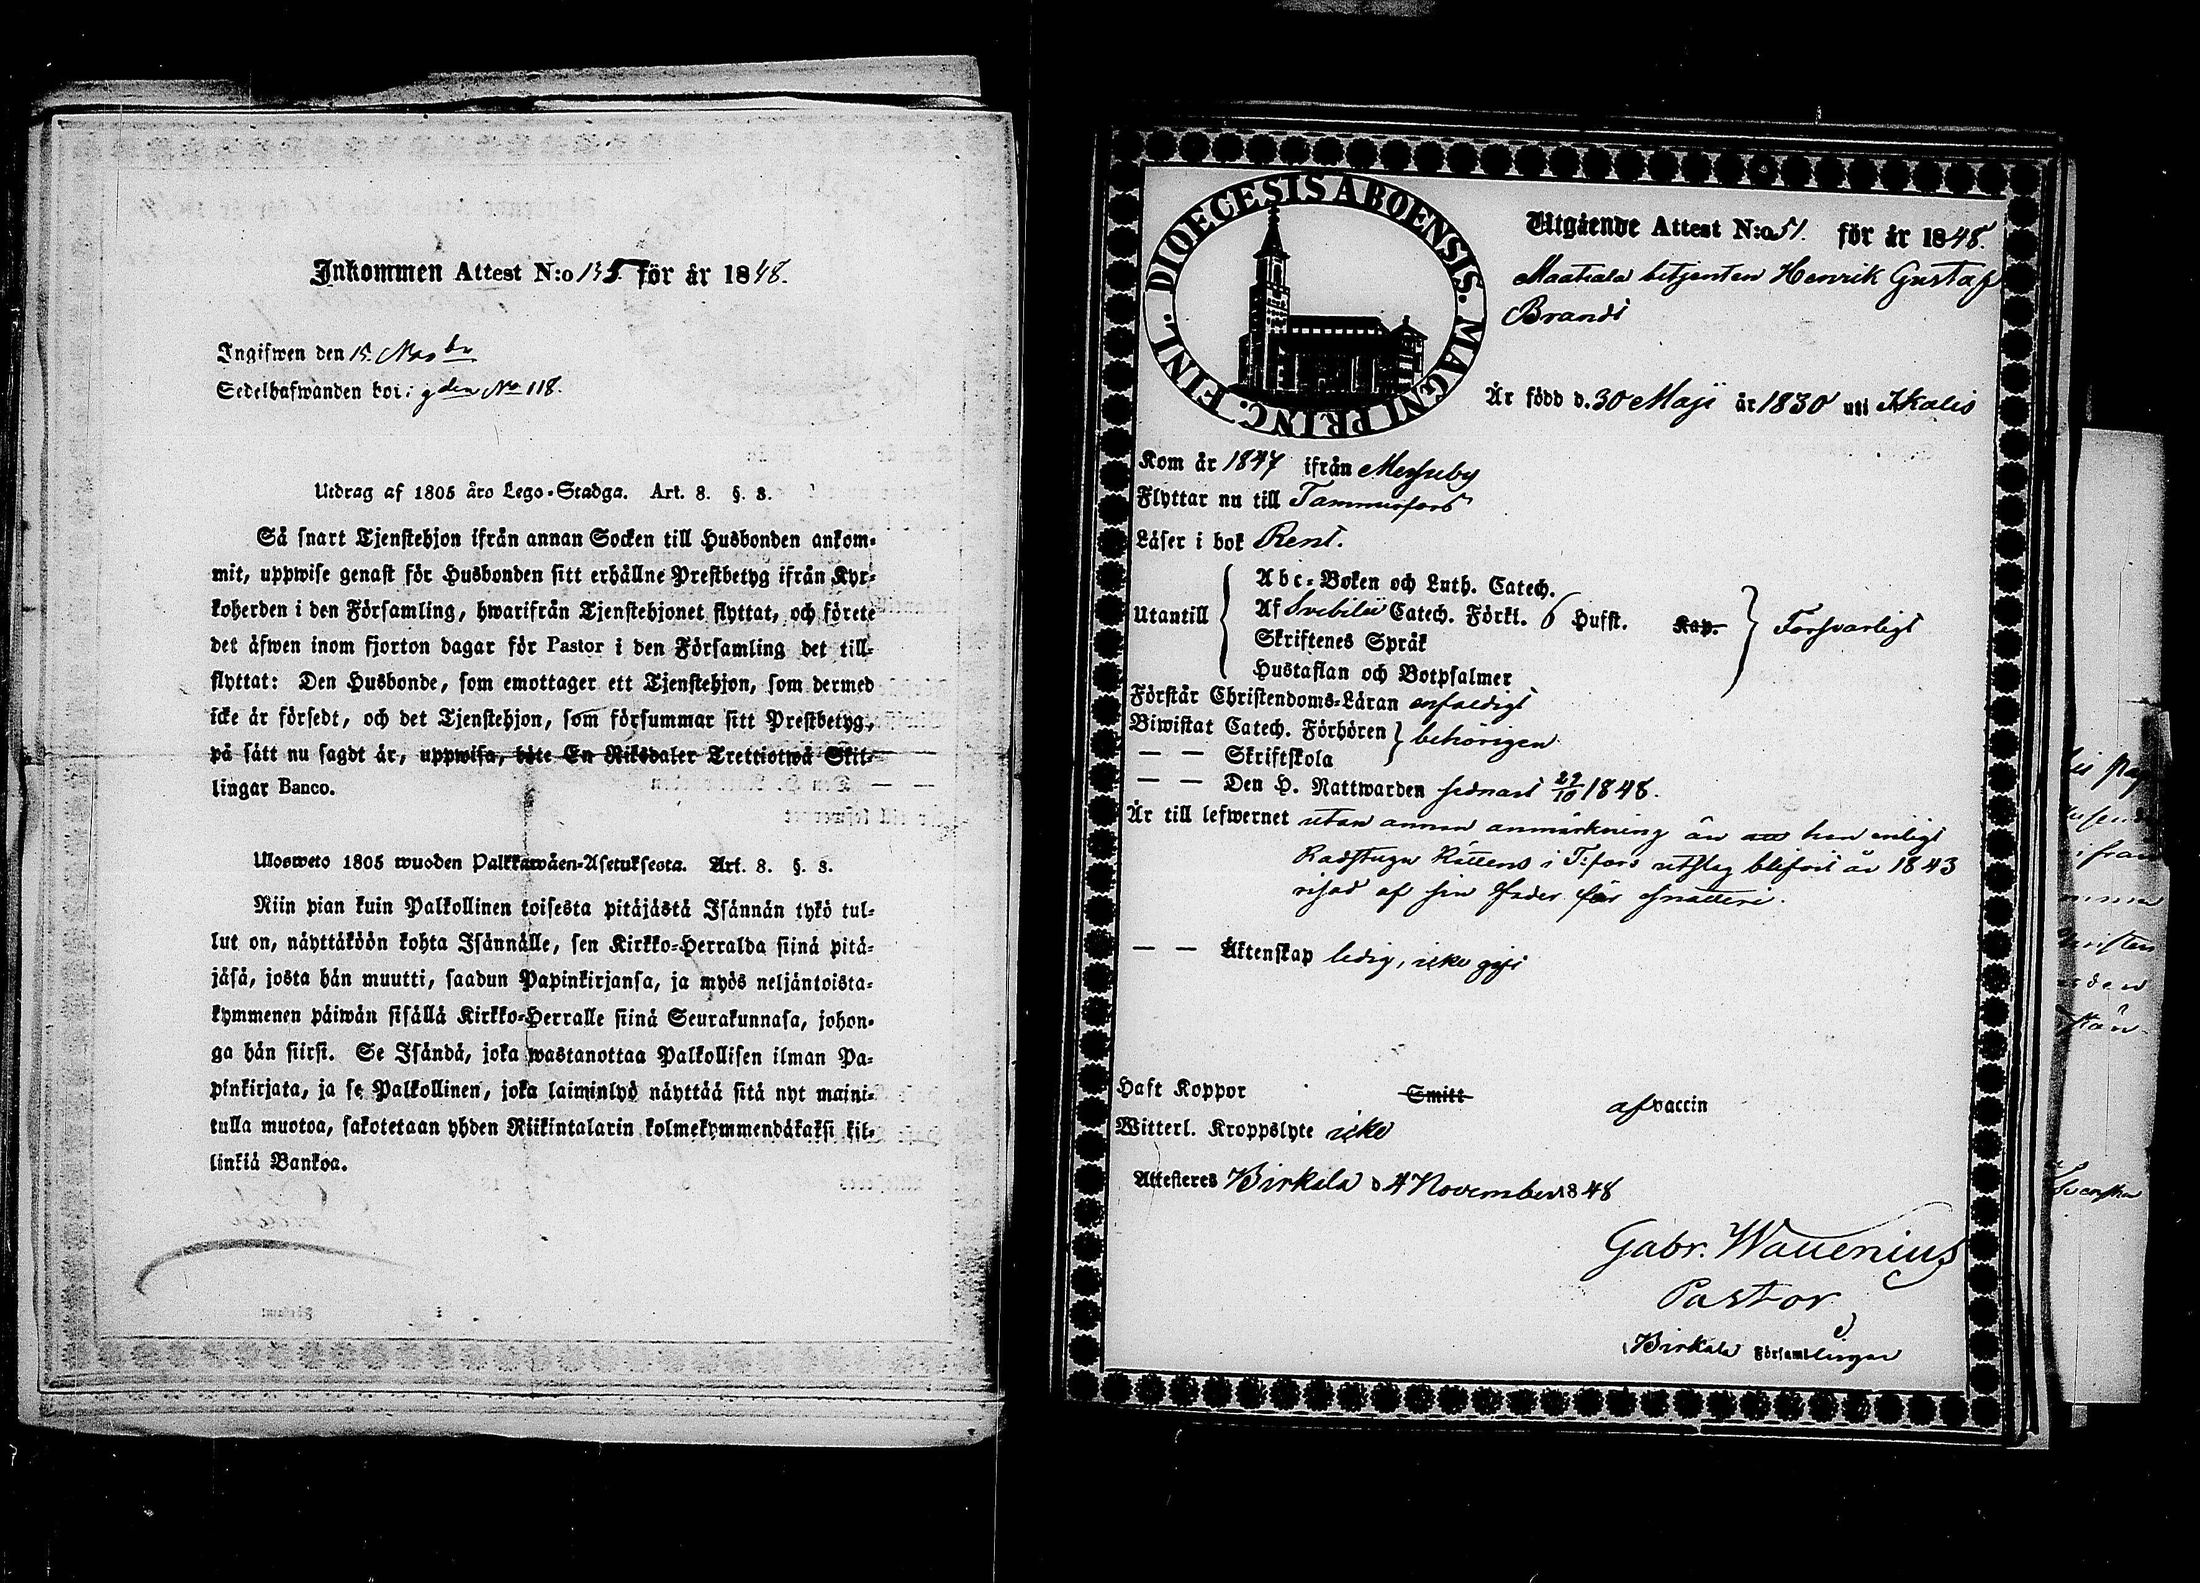 Inkommen Attest N:o 135 för år 1848.
Ingifwen den 15. Novbr
Sedelhafwanden bor: gden No 118.
Utdrag af 1805 års Lego-Stadga. Art. 8. §. 8.
Så snart Tjenstehjon ifrån annan Socken till Husbonden ankom-
mit, uppwise genast för Husbonden sitt erhållne Prestbetyg ifrån Kyr-
koherden i den Församling, hwarifrån Tjenstehjonet flyttat, och förete
det äfwen inom fjorton dagar för Pastor i den Församling det till-
flyttat: Den Husbonde, som emottager ett Tjenstehjon, som dermed
icke är försedt, och det Tjenstehjon, som försummar sitt Prestbetyg,
på sätt nu sagdt är, uppwisa, böte En Riksdaler Trettiotwå Skil-
lingar Banco.
Ulosweto 1805 wuoden Palkkawäen-Asetuksesta. Art. 8. §. 8.
Niin pian kuin Palkollinen toisesta pitäjästä Isännän tykö tul-
lut on, näyttäköön kohta Isännälle, sen Kirkko-Herralda siinä pitä-
jäsä, josta hän muutti, saadun Papinkirjansa, ja myös neljäntoista-
kymmenen päiwän sisällä Kirkko-Herralle siinä Seurakunnasa, johon-
ga hän siirsi. Se Isändä, joka wastanottaa Palkollisen ilman Pa-
pinkirjata, ja se Palkollinen, joka laiminlyö näyttää sitä nyt maini-
tulla muotoa, sakotetaan yhden Riikintalarin kolmekymmendäkaksi kil-
linkiä Bankoa.
DIOECESIS ABOENSIS. MAGNI PRINC. FINL.
Utgående Attest N:o 51. för år 1848.
Maatiala betjenten Henrik Gustaf
Brandt
Är född d. 30 Maji år 1830 uti Ikalis
Kom år 1847 ifrån Messuby
Flyttar nu till Tammerfors
Läser i bok Rent.
Utantill Abc-Boken och Luth. Catech.
Af Svebilii Catech. Förkl. 6 Hufst. Kap. Försvarligt
Skriftenes Språk
Hustaflan och Botpsalmer
Förstår Christendoms-Läran enfaldigt
Biwistat Catech. Förhören behörigen
— — Skriftskola
— — Den H. Nattwarden sednast 29/10 1848.
Är till lefwernet utan annan anmärkning än att han enligt
Rådstugu Rättens i T:fors utslag blifvit år 1843
risad af sin Fader för snatteri.
— — Äktenskap ledig, icke gift
Haft Koppor Smitt af vaccin
Witterl. Kroppslyte icke
Attesteres Birkala d 4 November 1848
Gabr. Wauenius
Pastor
i
Birkala Församlingar
ifrån
Svenska